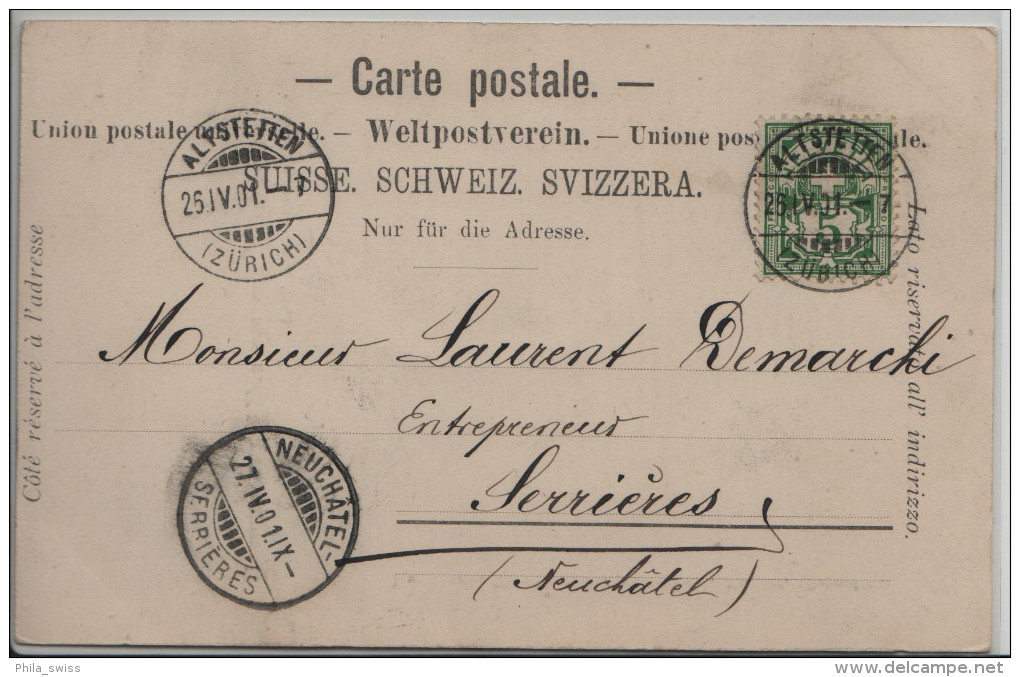 — Carte postale. —
Union postale universelle. — Weltpostverein. — Unione postale universale.
SUISSE. SCHWEIZ. SVIZZERA.
Nur für die Adresse.
ALTSTETTEN
26.IV.01. – 7
(ZÜRICH)
ALTSTETTEN
26.IV.01. – 7
(ZÜRICH)
5
Côté réservé à l'adresse
Lato riservato all' indirizzo.
Monsieur Laurent Demarchi
Entrepreneur
Serrières
(Neuchâtel)
NEUCHÂTEL-
27.IV.01.IX–
SERRIÈRES
Phila_swiss
http://www.delcampe.net